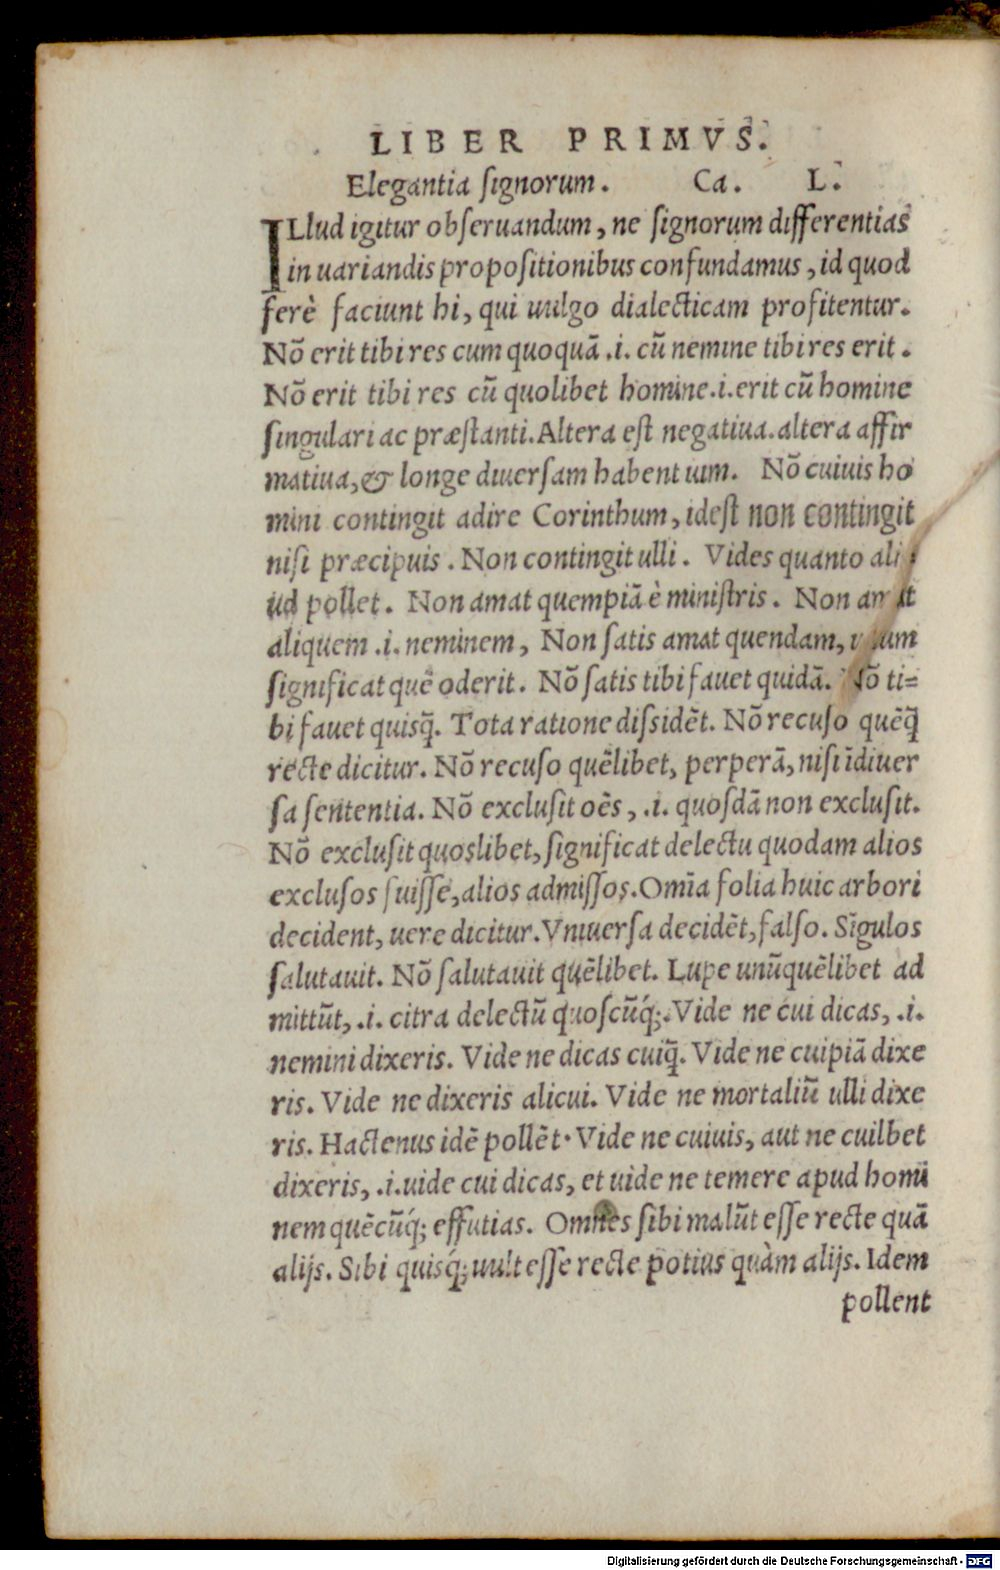 LIBER PRIMVS.
Elegantia signorum. Ca. L.
ILlud igitur obseruandum, ne signorum differentias
in uariandis propositionibus confundamus, id quod
ferè faciunt hi, qui uulgo dialecticam profitentur.
Nō erit tibi res cum quoquā .i. cū nemine tibi res erit.
Nō erit tibi res cū quolibet homine .i. erit cū homine
singulari ac præstanti. Altera est negatiua. altera affir
matiua, & longe diuersam habent uim. Nō cuiuis ho
mini contingit adire Corinthum, idest non contingit
nisi præcipuis. Non contingit ulli. Vides quanto ali
ud pollet. Non amat quempiā è ministris. Non amat
aliquem .i. neminem, Non satis amat quendam, unum
significat quē oderit. Nō satis tibi fauet quidā. Nō ti=
bi fauet quisq̄. Tota ratione dissidēt. Nō recuso quēq̄
recte dicitur. Nō recuso quēlibet, perperā, nisi īdiuer
sa sententia. Nō exclusit oēs, .i. quosdā non exclusit.
Nō exclusit quoslibet, significat delectu quodam alios
exclusos fuisse, alios admissos. Omīa folia huic arbori
decident, uere dicitur. Vniuersa decidēt, falso. Sīgulos
salutauit. Nō salutauit quēlibet. Lupe unūquēlibet ad
mittūt, .i. citra delectū quoscūq́;. Vide ne cui dicas, .i.
nemini dixeris. Vide ne dicas cuiq̄. Vide ne cuipiā dixe
ris. Vide ne dixeris alicui. Vide ne mortaliū ulli dixe
ris. Hactenus idē pollēt. Vide ne cuiuis, aut ne cuilbet
dixeris, .i. uide cui dicas, et uide ne temere apud homi
nem quēcūq́; effutias. Omnes sibi malūt esse recte quā
alijs. Sibi quisq́; uult esse recte potius quàm alijs. Idem
pollent
Digitalisierung gefördert durch die Deutsche Forschungsgemeinschaft - DFG